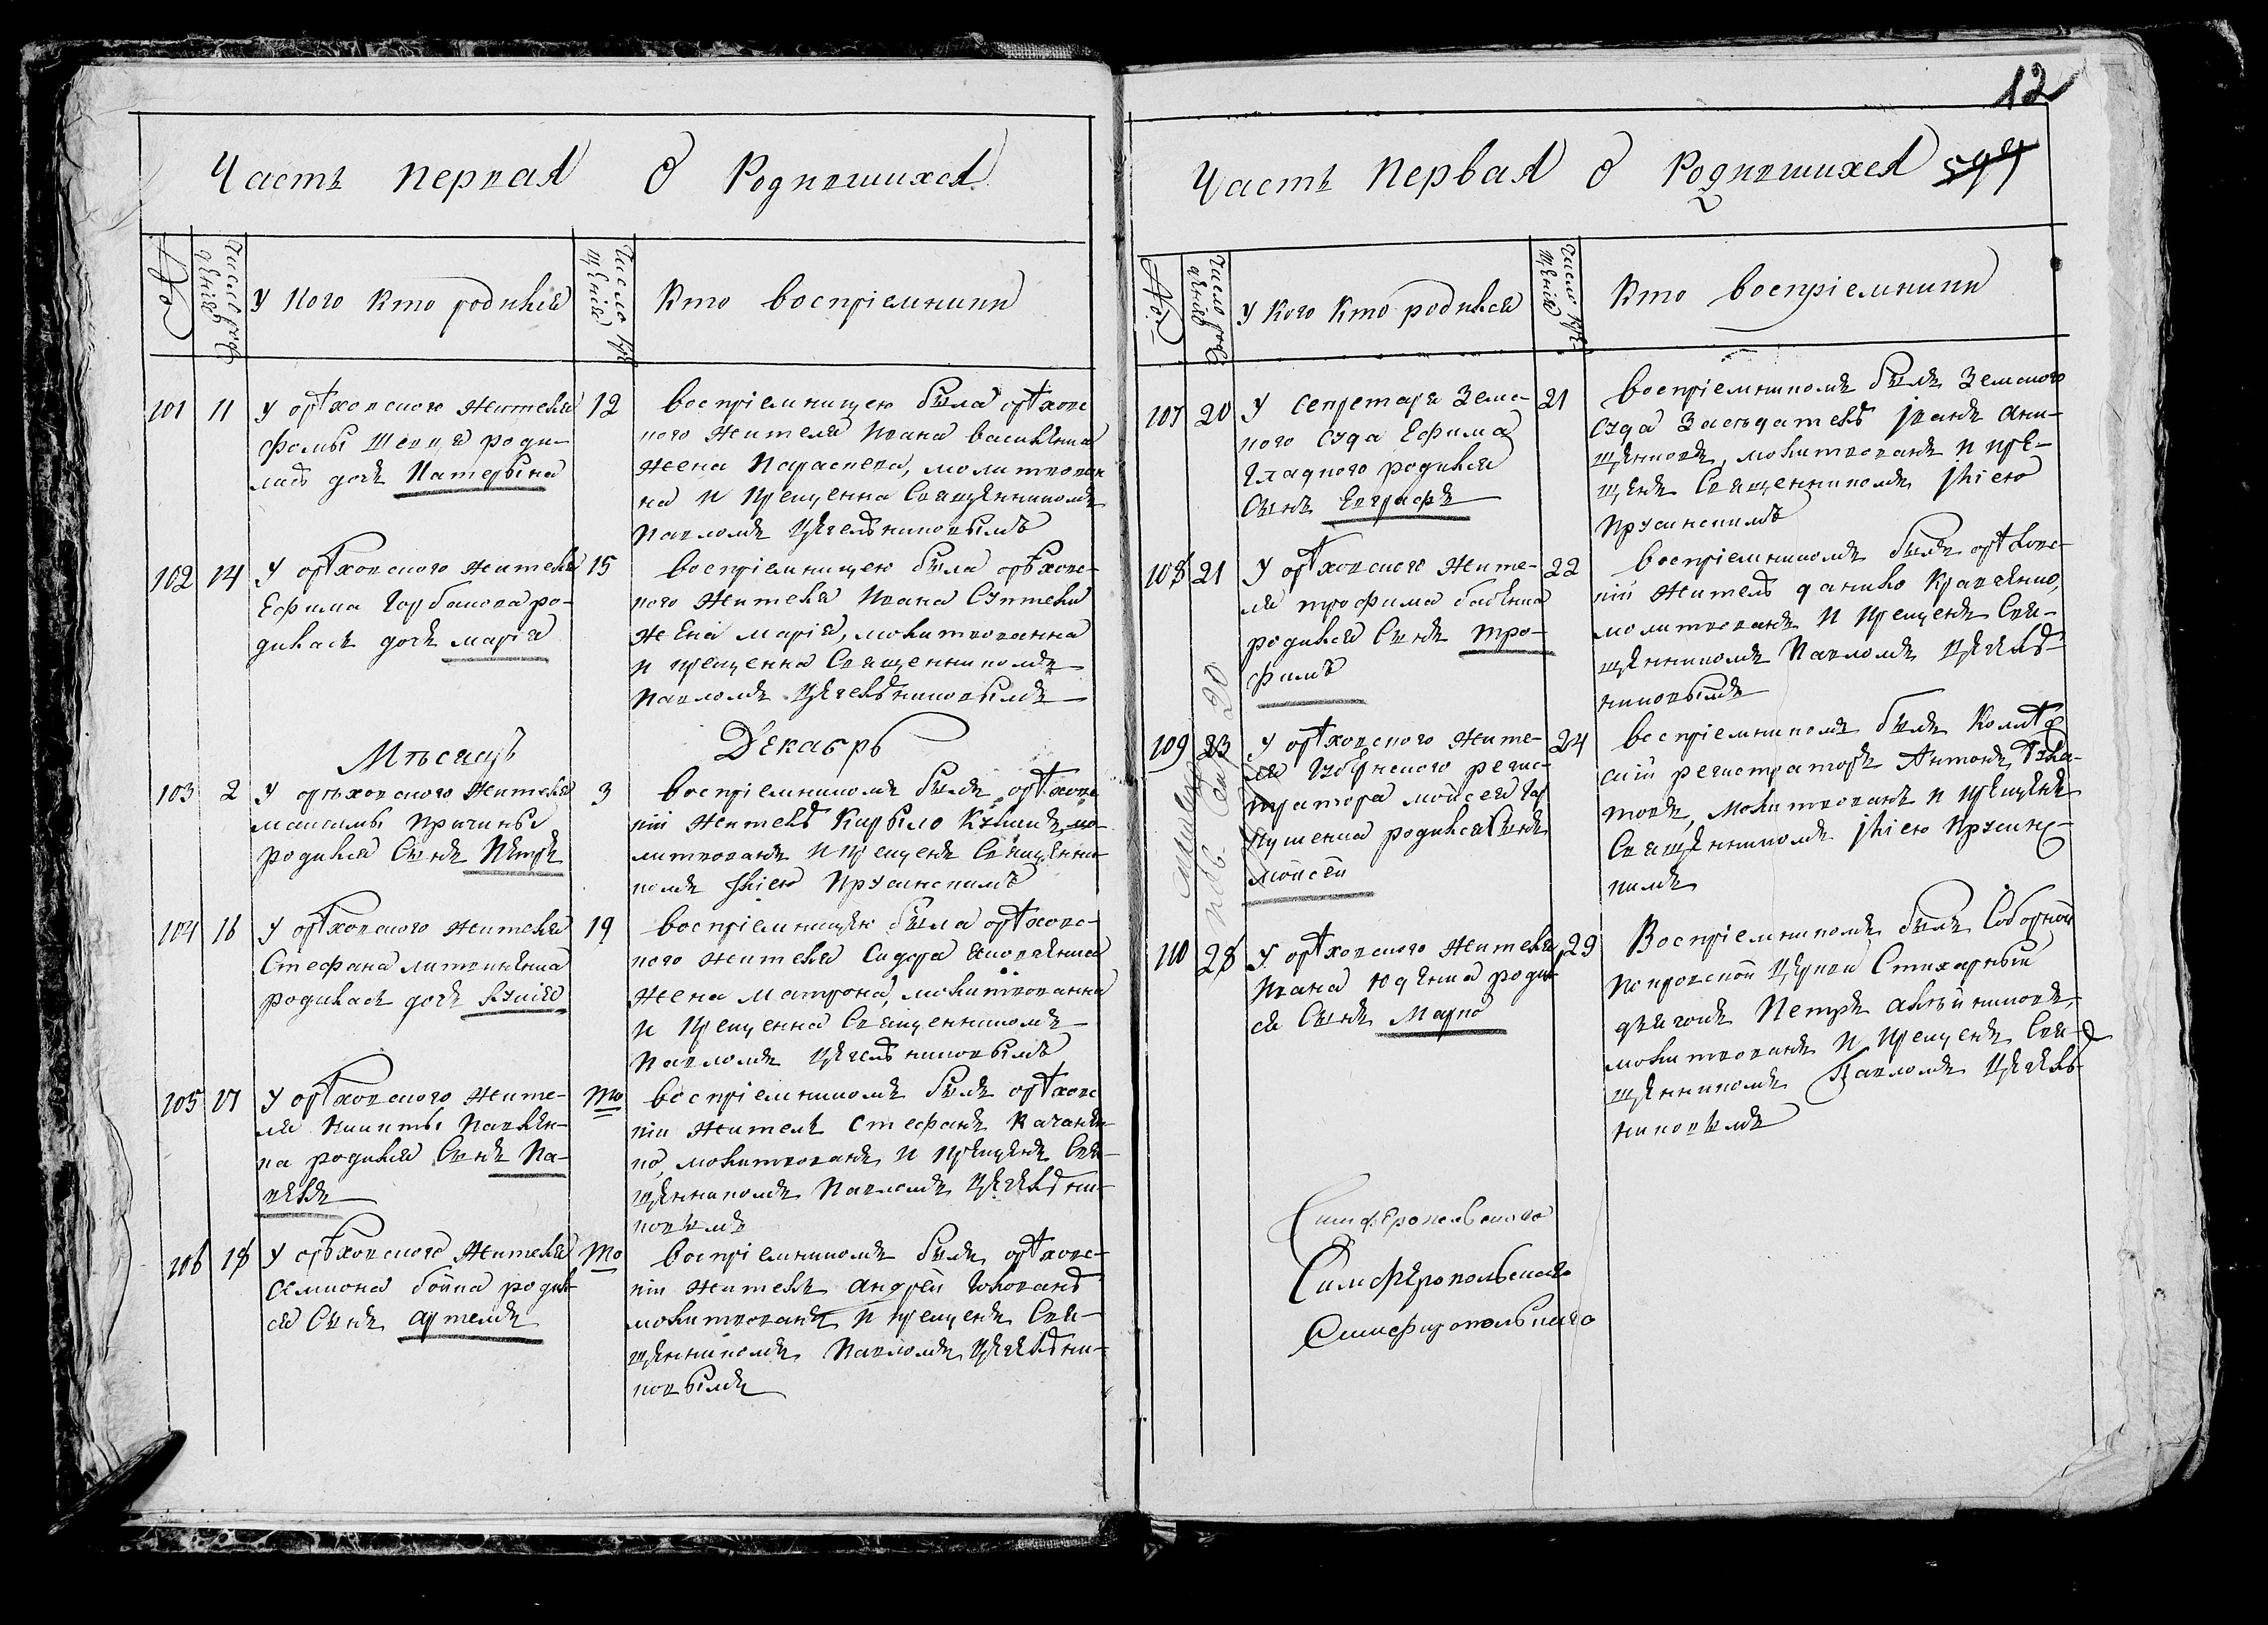 Часть первая О Родившихся
№
Число рож
денія
У кого кто родился
Число кре
щенія
Кто воспріемники
101 11 У орѣховского жителя 12
Фомы Шевця роди-
лась дочь Катерына
воспріемницею была орѣховс
кого жителя Ивана василенка
жена Параскева, молитвован
на и крещенна Священникомъ
Павломъ Цегельниковымъ
102 14 У орѣховского жителя 15
Ефима Горбанова ро-
дилась дочь марія
воспріемницею была орѣховс-
кого жителя Ивана
жена марія, молитвованна
и крещенна Священникомъ
Павломъ Цегельниковымъ
Мѣсяцъ Декабрь
103 2 У орѣховского жителя 3
максимы Притыки
родился Сынъ Петръ
воспріемникомъ былъ орѣховс
кій житель Кирыло мо-
литвованъ и крещенъ Священни-
комъ Іліею Прусинскимъ
104 16 У орѣховского жителя 19
Стефана литвиненка
родилась дочь Іулія
воспріемницею была орѣховс-
кого жителя Сидора яковленка
жена матрона, молитвованна
и крещенна Священникомъ
Павломъ Цегельниковымъ
105 17 У орѣховского жите- то
ля Никиты Павлен-
ка родился Сынъ Па-
велъ
воспріемникомъ былъ орѣховс
кій житель Стефанъ Качанен-
ко, молитвованъ и крещенъ Свя-
щенникомъ Павломъ Цегельни-
ковымъ
106 18 У орѣховского жителя то
Семиона бойка родил-
ся Сынъ артемъ
воспріемникомъ былъ орѣховс-
кій житель андрей Головань
молитвованъ и крещенъ Свя-
щенникомъ Павломъ Цегельни-
ковымъ
12
Часть Первая О Родившихся 599
№
Число рож
денія
У кого кто родился
Число кре-
щенія
Кто воспріемники
107 20 У секретаря Земс- 21
кого суда Ефима
Гладкого родился
Сынъ Евграфъ
воспріемникомъ былъ Земского
суда Засѣдатель Іванъ ани-
щенковъ, молитвованъ и кре-
щенъ Священникомъ Іліею
Прусинскимъ
108 21 У орѣховского жите- 22
ля трофима бабенка
родился Сынъ тро-
фимъ
воспріемникомъ былъ орѣховс-
кій житель данило Кравченко,
молитвованъ и крещенъ Свя-
щенникомъ Павломъ Цегель-
никовымъ
109 23 У орѣховского жите- 24
ля Губернского регис-
тратора мойсея Гар
кушенка родился Сынъ
мойсей
воспріемникомъ былъ Коллѣж
скій регистраторъ Антонъ
товъ, молитвованъ и крещенъ
Священникомъ Іліею Прусинс-
кимъ
110 28 У орѣховского жителя 29
Ивана юденка родил
ся Сынъ Марко
Воспріемникомъ былъ Соборной
Покровской Церкви Стихарный
дьячокъ Петръ алейниковъ,
молитвованъ и крещенъ Свя-
щенникомъ Павломъ Цегель-
никовымъ
Симферопольского
Симферопольского
Симферопольскаго